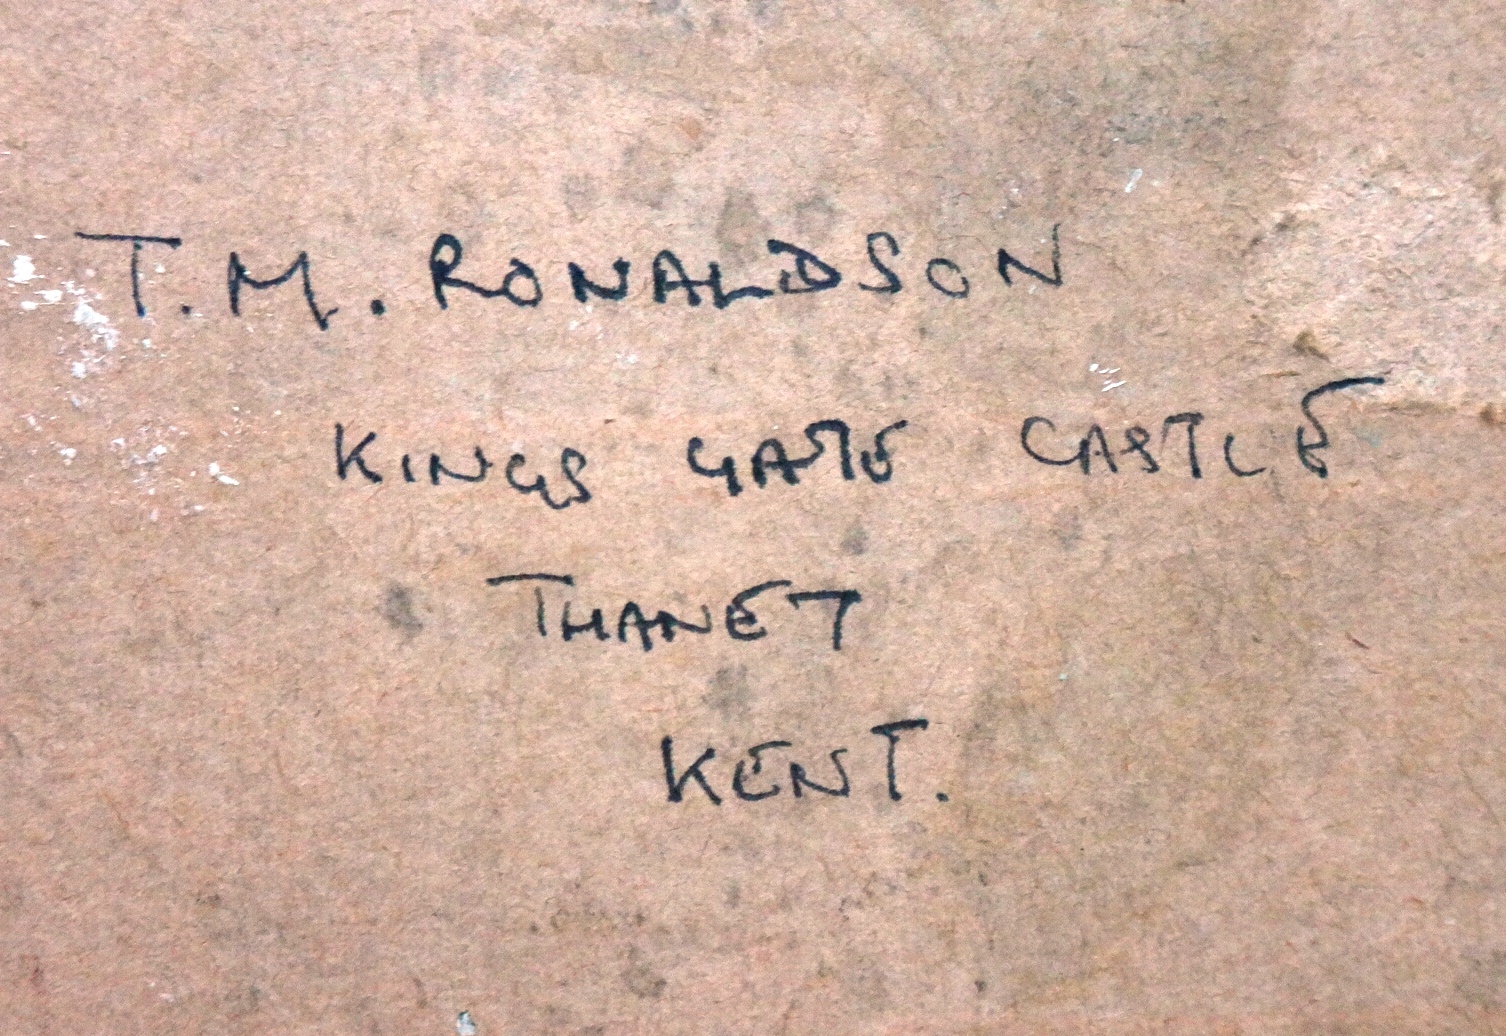 T. M. RONALDSON
KINGS GATE CASTLE
THANET
KENT.